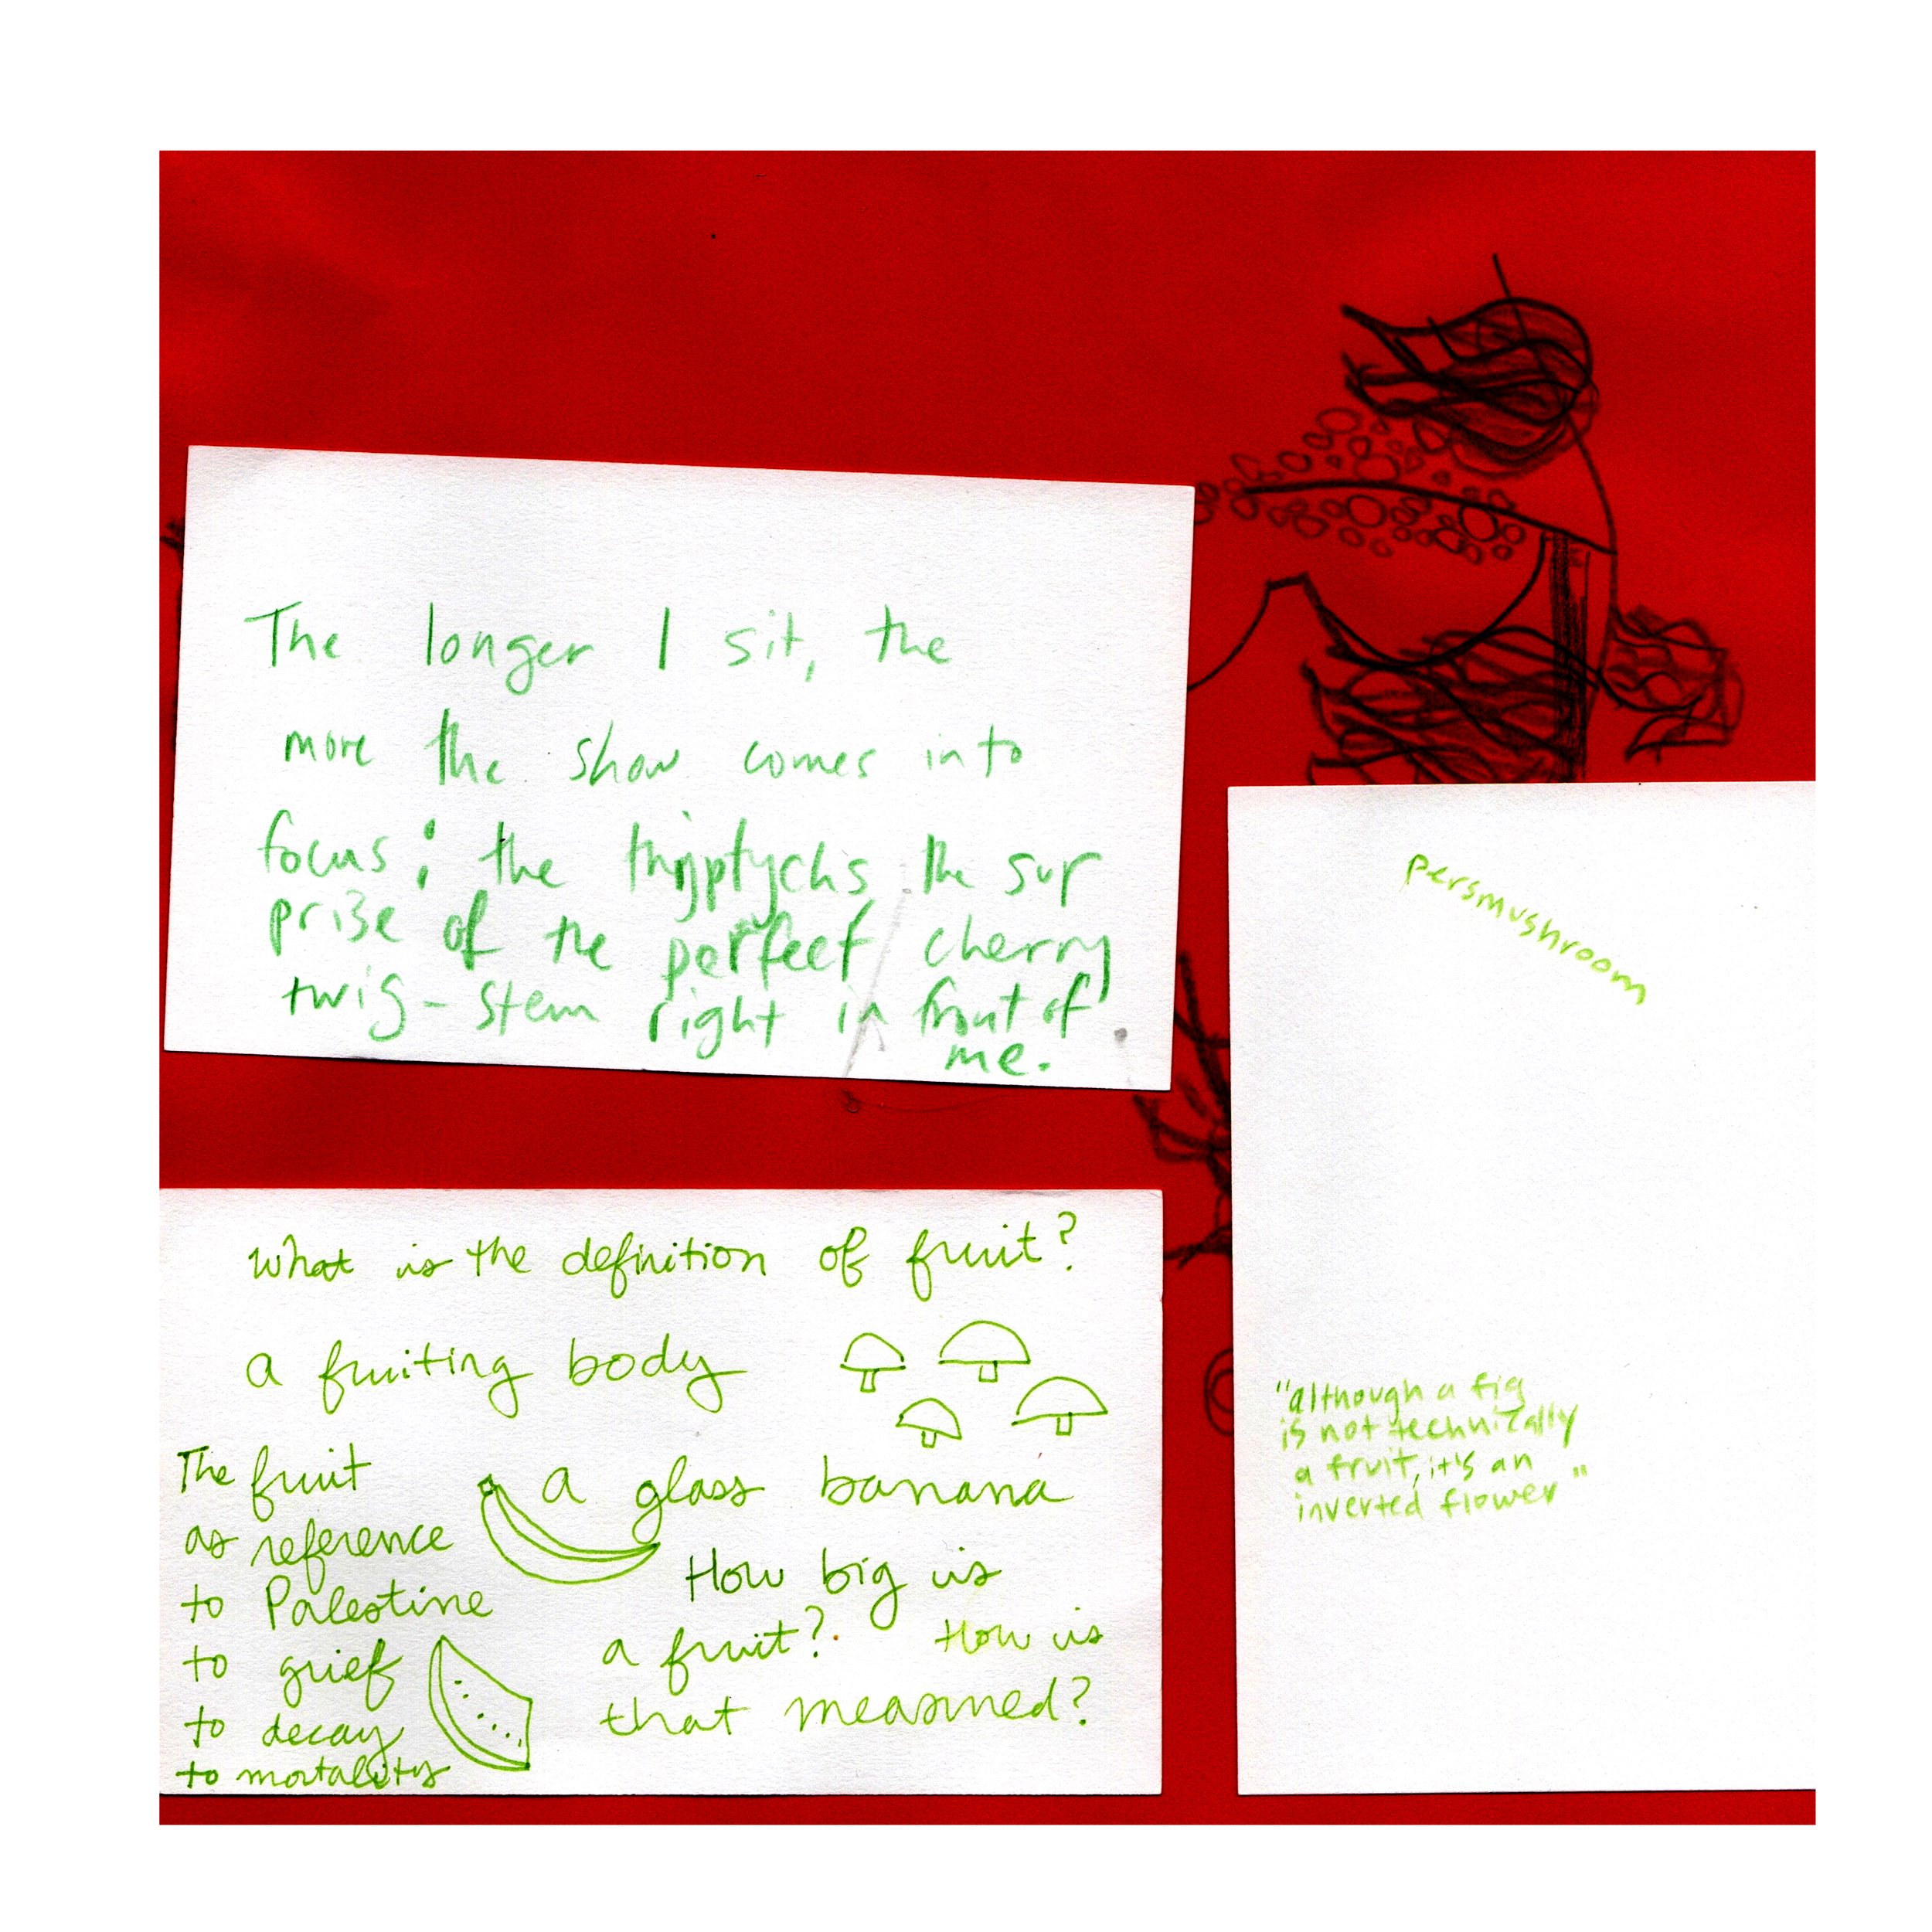 The longer I sit, the
more the show comes into
focus: the triptychs the sur
prise of the perfect cherry
twig-stem right in front of
me.
persmushroom
"although a fig
is not technically
a fruit, it's an
inverted flower"
What is the definition of fruit?
a fruiting body
The fruit
as reference
to Palestine
to grief
to decay
to mortality
a glass banana
How big is
a fruit? How is
that measured?